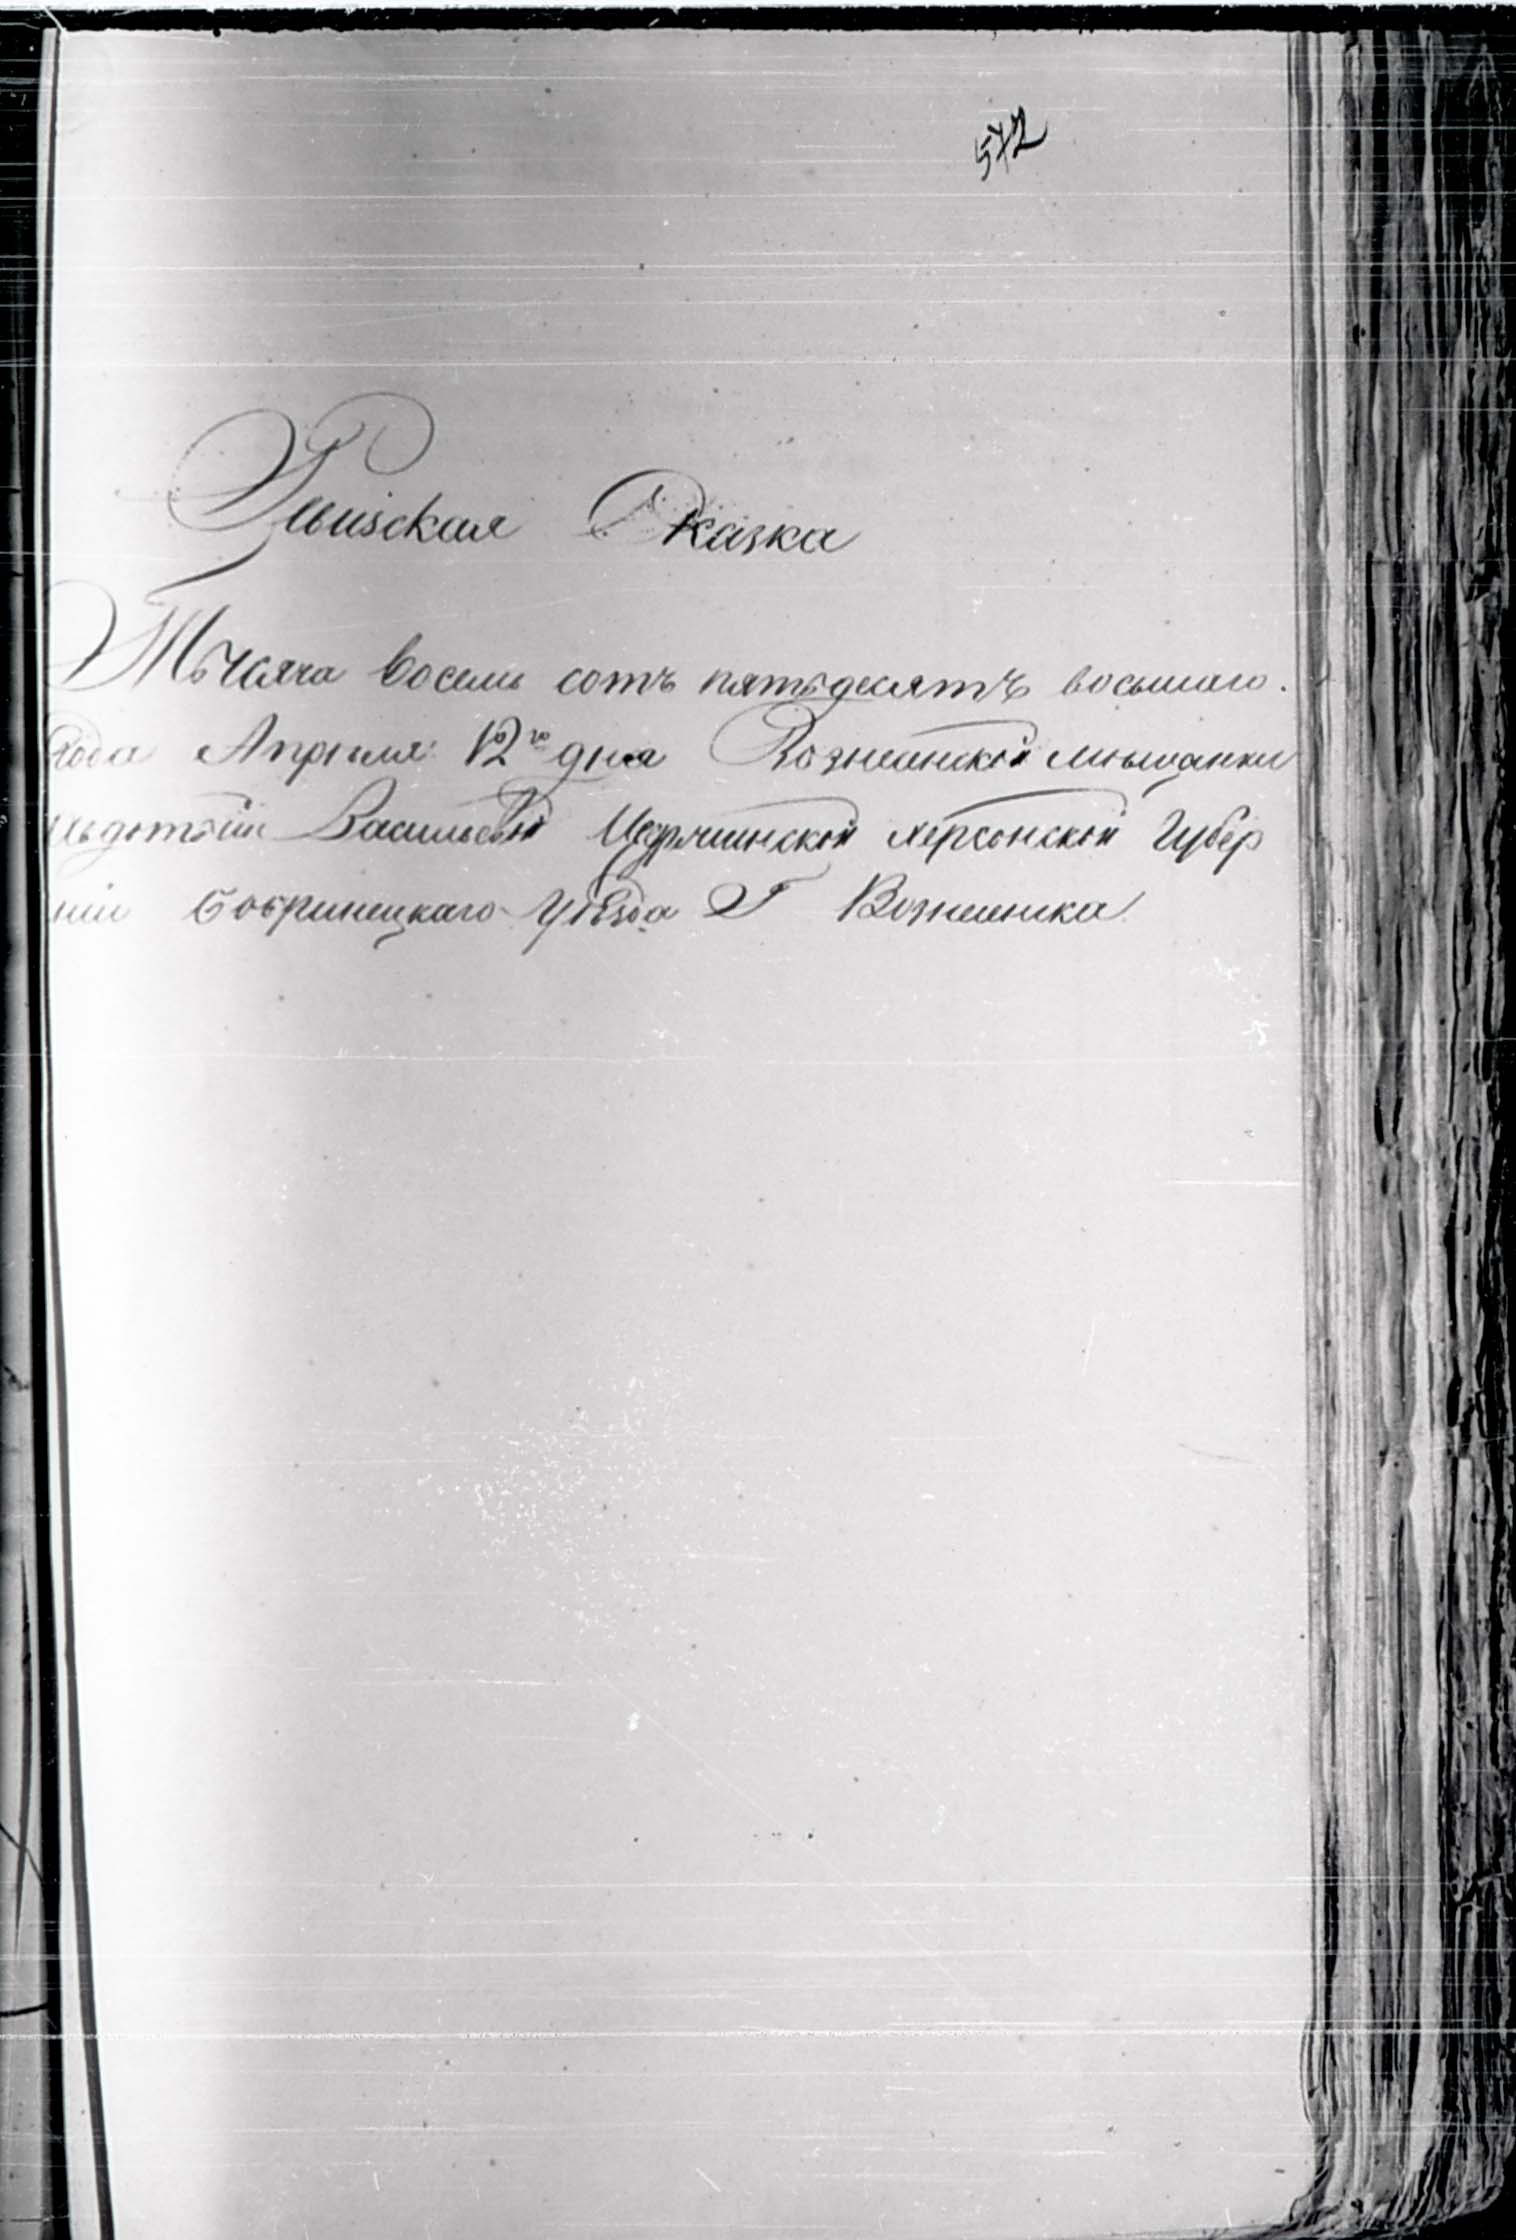 572
Ревизская Сказка
Тысяча восемь сотъ пятьдесятъ восьмаго.
Года Апреля 12го дня Вознесенской мѣщанки
Васильевой Херсонской Губер
ніи Бобринецкаго уѣзда Г Вознесенска